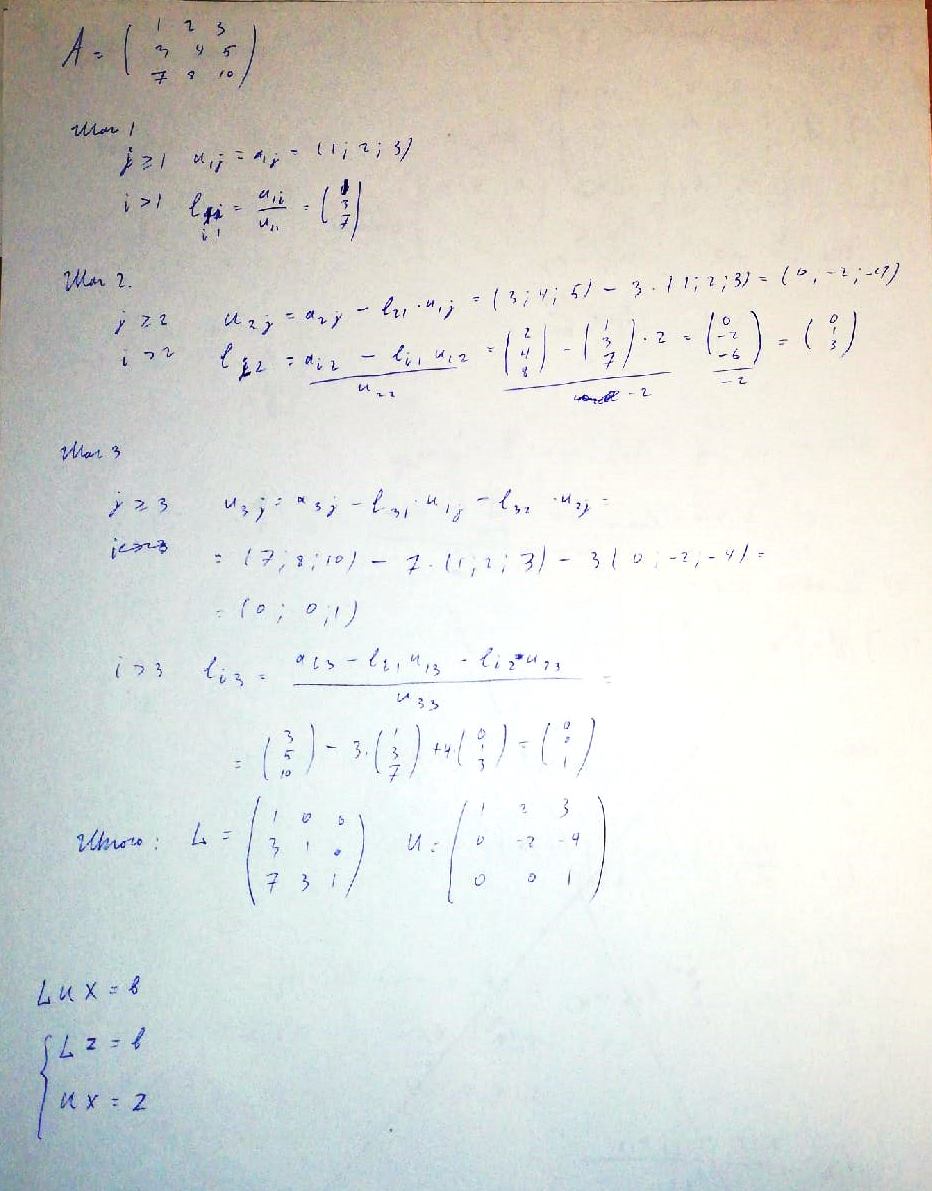 A = ( 1 2 3
3 4 5
7 8 10 )
Шаг 1
j ≥ 1 u₁ⱼ = a₁ⱼ = (1; 2; 3)
i > 1 lᵢ₁ = a₁ᵢ / u₁₁ = ( 1 3 7 )
Шаг 2.
j ≥ 2 u₂ⱼ = a₂ⱼ − l₂₁ · u₁ⱼ = (3; 4; 5) − 3 · (1; 2; 3) = (0, −2; −4)
i > 2 lᵢ₂ = (aᵢ₂ − lᵢ₁ u₁₂) / u₂₂ = (( 2 4 8 ) − ( 1 3 7 ) · 2) / −2 = ( 0 −2 −6 ) / −2 = ( 0 1 3 )
Шаг 3
j ≥ 3 u₃ⱼ = a₃ⱼ − l₃₁ u₁ⱼ − l₃₂ · u₂ⱼ =
= (7; 8; 10) − 7 · (1; 2; 3) − 3 (0; −2; −4) =
= (0; 0; 1)
i > 3 lᵢ₃ = (aᵢ₃ − lᵢ₁ u₁₃ − lᵢ₂ u₂₃) / u₃₃ =
= ( 3 5 10 ) − 3 · ( 1 3 7 ) + 4 ( 0 1 3 ) = ( 0 0 1 )
Итого: L = ( 1 0 0
3 1 0
7 3 1 ) U = ( 1 2 3
0 −2 −4
0 0 1 )
LUX = b
{ LZ = b
UX = Z